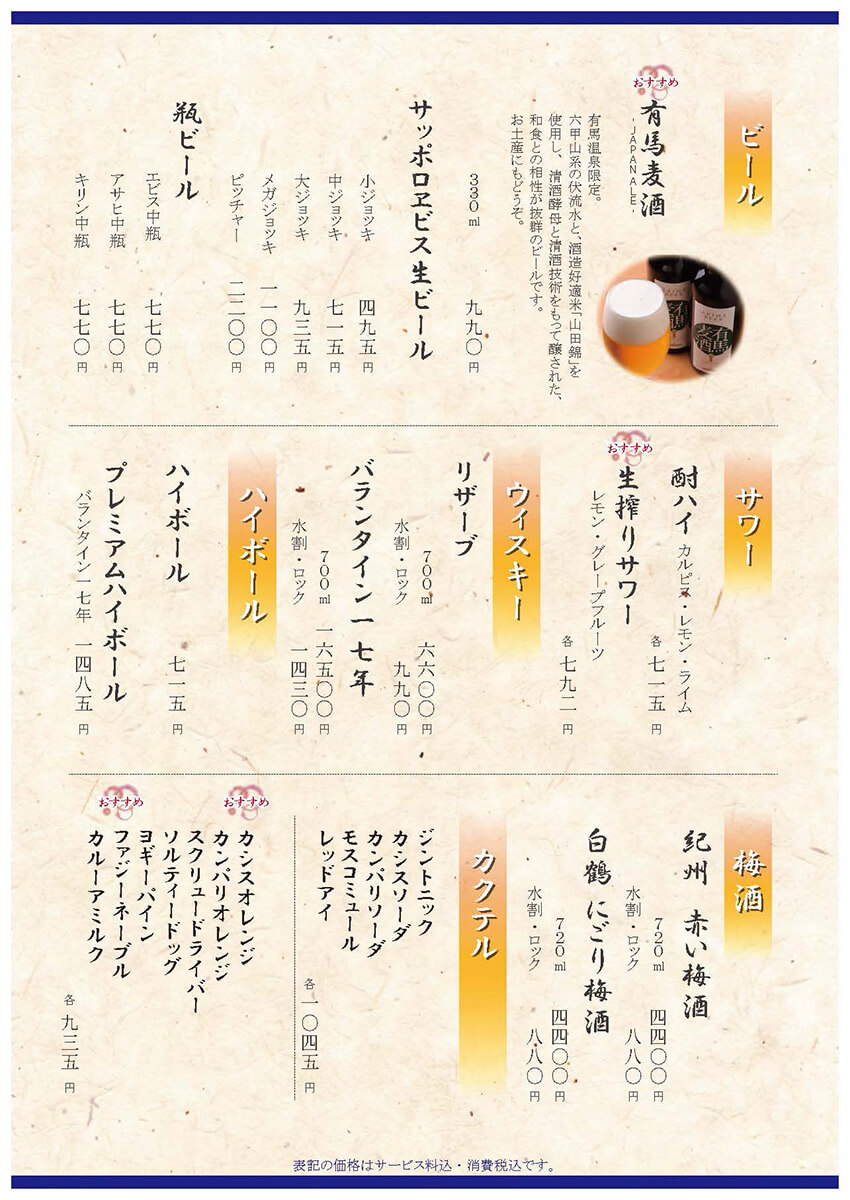 ビール
おすすめ
有馬麦酒
-JAPAN ALE-
有馬温泉限定。
六甲山系の伏流水と、酒造好適米「山田錦」を
使用し、清酒酵母と清酒技術をもって醸された、
和食との相性が抜群のビールです。
お土産にもどうぞ。
330ml 九九〇円
サッポロヱビス生ビール
小ジョッキ 四九五円
中ジョッキ 七一五円
大ジョッキ 九三五円
メガジョッキ 一一〇〇円
ピッチャー 二二〇〇円
瓶ビール
エビス中瓶 七七〇円
アサヒ中瓶 七七〇円
キリン中瓶 七七〇円
有馬麦酒
サワー
酎ハイ カルピス・レモン・ライム
各 七一五円
おすすめ
生搾りサワー
レモン・グレープフルーツ
各 七九二円
ウィスキー
リザーブ
700ml 六六〇〇円
水割・ロック 九九〇円
バランタイン一七年
700ml 一六五〇〇円
水割・ロック 一四三〇円
ハイボール
ハイボール 七一五円
プレミアムハイボール
バランタイン一七年 一四八五円
梅酒
紀州 赤い梅酒
720ml 四四〇〇円
水割・ロック 八八〇円
白鶴 にごり梅酒
720ml 四四〇〇円
水割・ロック 八八〇円
カクテル
ジントニック
カシスソーダ
カンパリソーダ
モスコミュール
レッドアイ
各 一〇四五円
おすすめ
カシスオレンジ
カンパリオレンジ
スクリュードライバー
ソルティードッグ
ヨギーパイン
おすすめ
ファジーネーブル
カルーアミルク
各 九三五円
表記の価格はサービス料込・消費税込です。